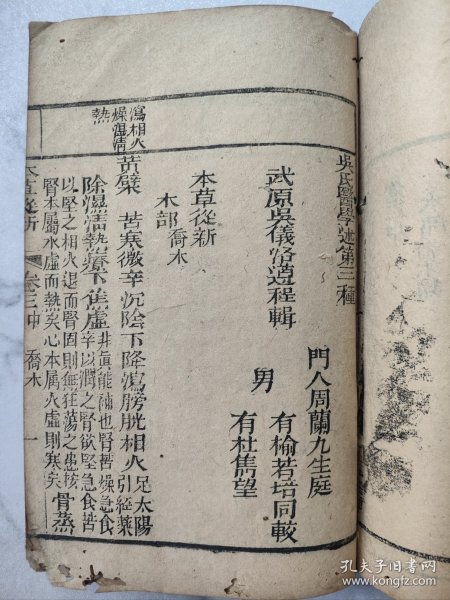 吳氏醫學述第三種
門人周蘭九生庭
武原吳儀洛遵程輯
男
有榆若培同較
有杜雋望
本草從新
木部喬木
黃檗
苦寒微辛沉陰下降瀉膀胱相火
足太陽
引經藥
除濕清熱療下焦虛
非真能補也腎苦燥急食
辛以潤之腎欲堅急食苦
以堅之相火退而腎固則無狂蕩之患按
腎本屬水虛而熱矣心本屬火虛則寒矣
骨蒸
瀉相火
燥濕清
熱
本草從新
卷三中
喬木
一
孔夫子旧书网
www.kongfz.com